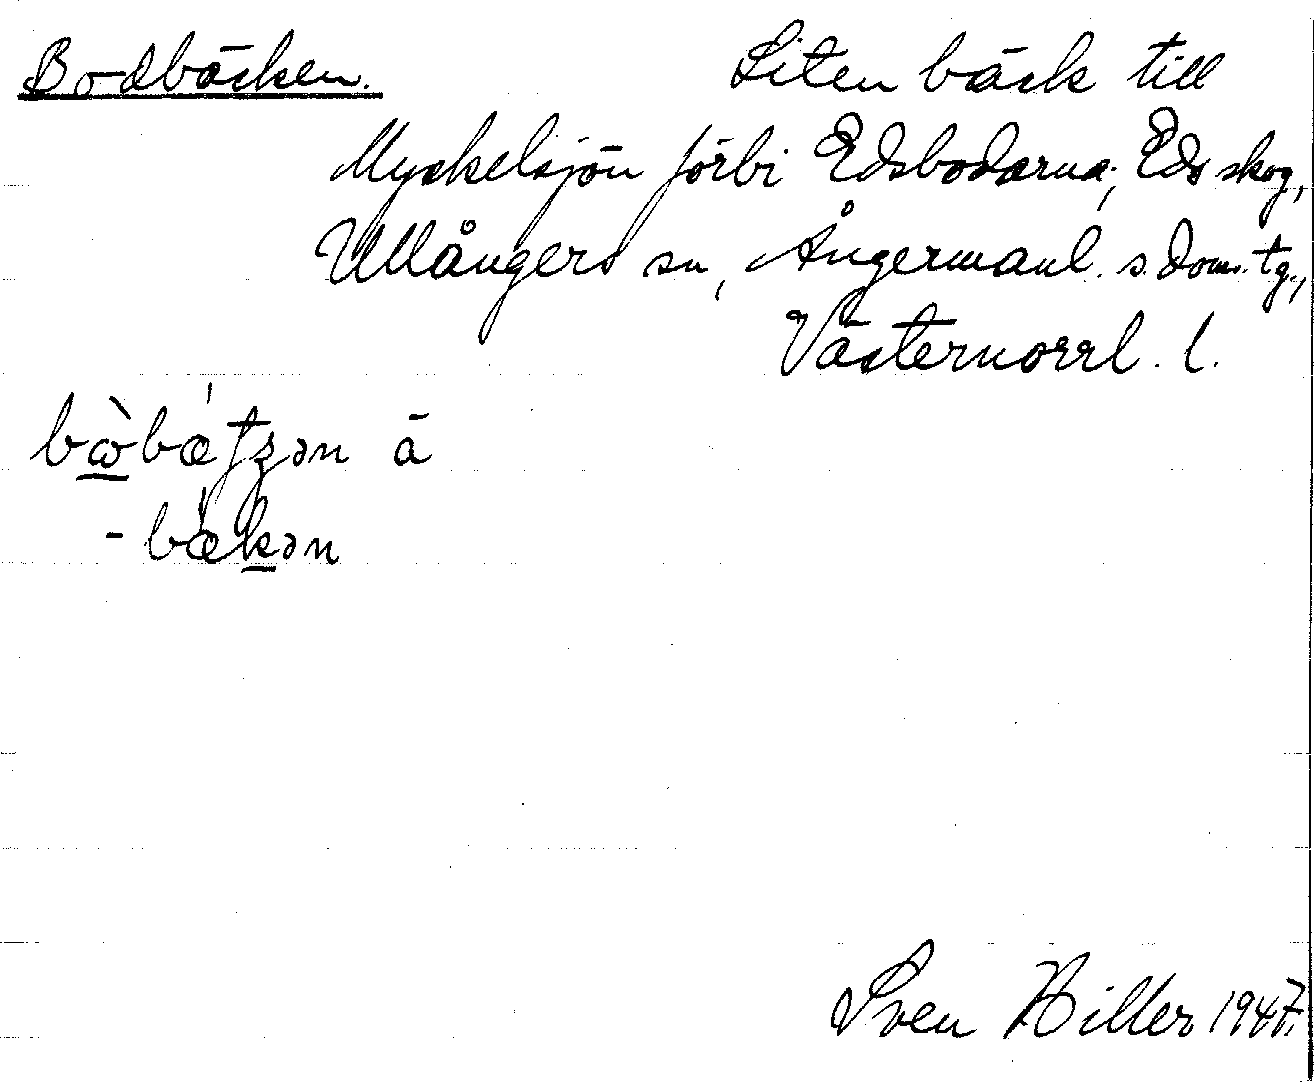 Bodbäcken. Liten bäck till
Myckelsjön förbi Edsbodarna, Eds skog,
Ullångers sn, Ångermanl. s. doms. tg.,
Västernorrl. l.
bὼbætʒən ā
- bækən
Sven Hiller 1947.